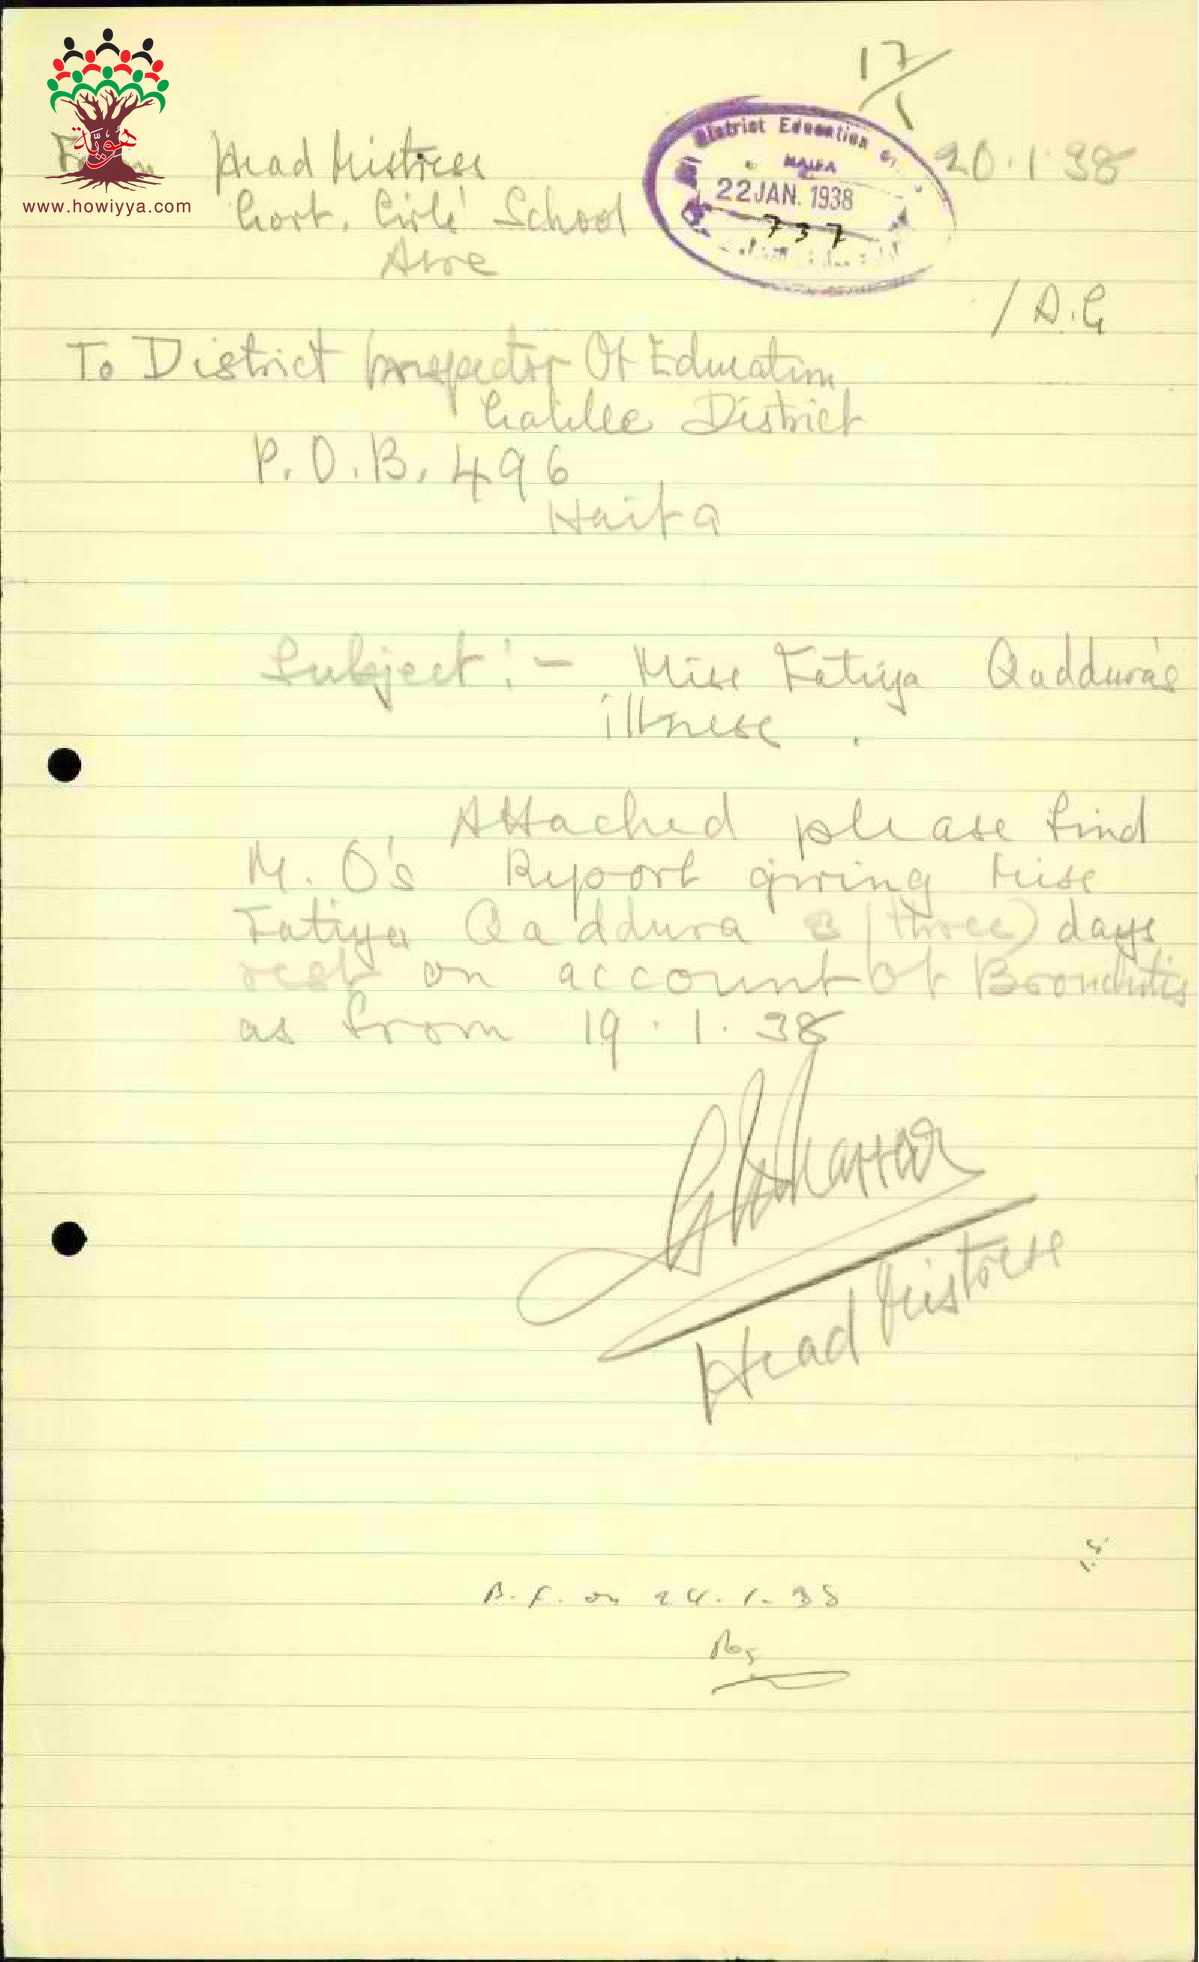 17/1
هويّة
www.howiyya.com
From Head Mistress
Govt. Girls' School
Acre
District Education
HAIFA
22 JAN. 1938
737
20.1.38
/A.G
To District Inspector Of Education
Galilee District
P.O.B. 496
Haifa
Subject:- Miss Fatiya Qaddura's
illness.
Attached please find
M.O's Report giving Miss
Fatiya Qaddura 3 (three) days
rest on account of Bronchitis
as from 19.1.38
Head Mistress
B.F. on 24.1.38